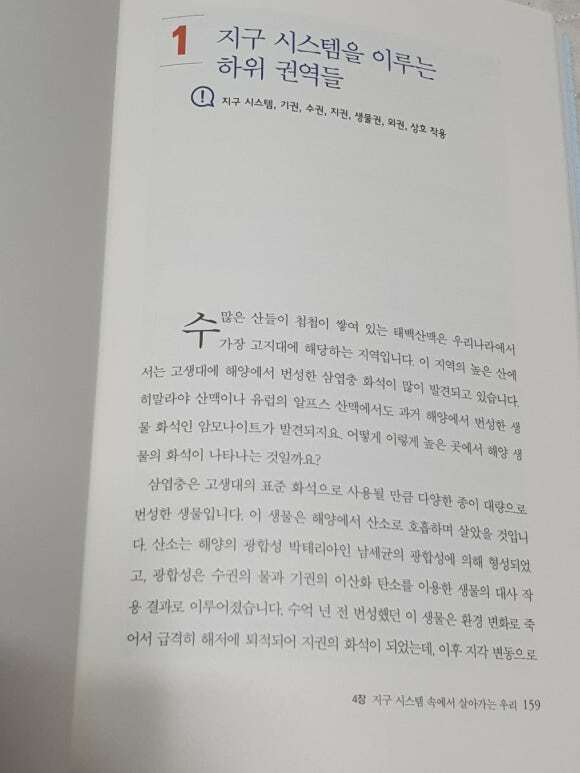 1 지구 시스템을 이루는
하위 권역들
! 지구 시스템, 기권, 수권, 지권, 생물권, 외권, 상호 작용
수많은 산들이 첩첩이 쌓여 있는 태백산맥은 우리나라에서
가장 고지대에 해당하는 지역입니다. 이 지역의 높은 산에
서는 고생대에 해양에서 번성한 삼엽충 화석이 많이 발견되고 있습니다.
히말라야 산맥이나 유럽의 알프스 산맥에서도 과거 해양에서 번성한 생
물 화석인 암모나이트가 발견되지요. 어떻게 이렇게 높은 곳에서 해양 생
물의 화석이 나타나는 것일까요?
삼엽충은 고생대의 표준 화석으로 사용될 만큼 다양한 종이 대량으로
번성한 생물입니다. 이 생물은 해양에서 산소로 호흡하며 살았을 것입니
다. 산소는 해양의 광합성 박테리아인 남세균의 광합성에 의해 형성되었
고, 광합성은 수권의 물과 기권의 이산화 탄소를 이용한 생물의 대사 작
용 결과로 이루어졌습니다. 수억 년 전 번성했던 이 생물은 환경 변화로 죽
어서 급격히 해저에 퇴적되어 지권의 화석이 되었는데, 이후 지각 변동으로
4장 지구 시스템 속에서 살아가는 우리 159